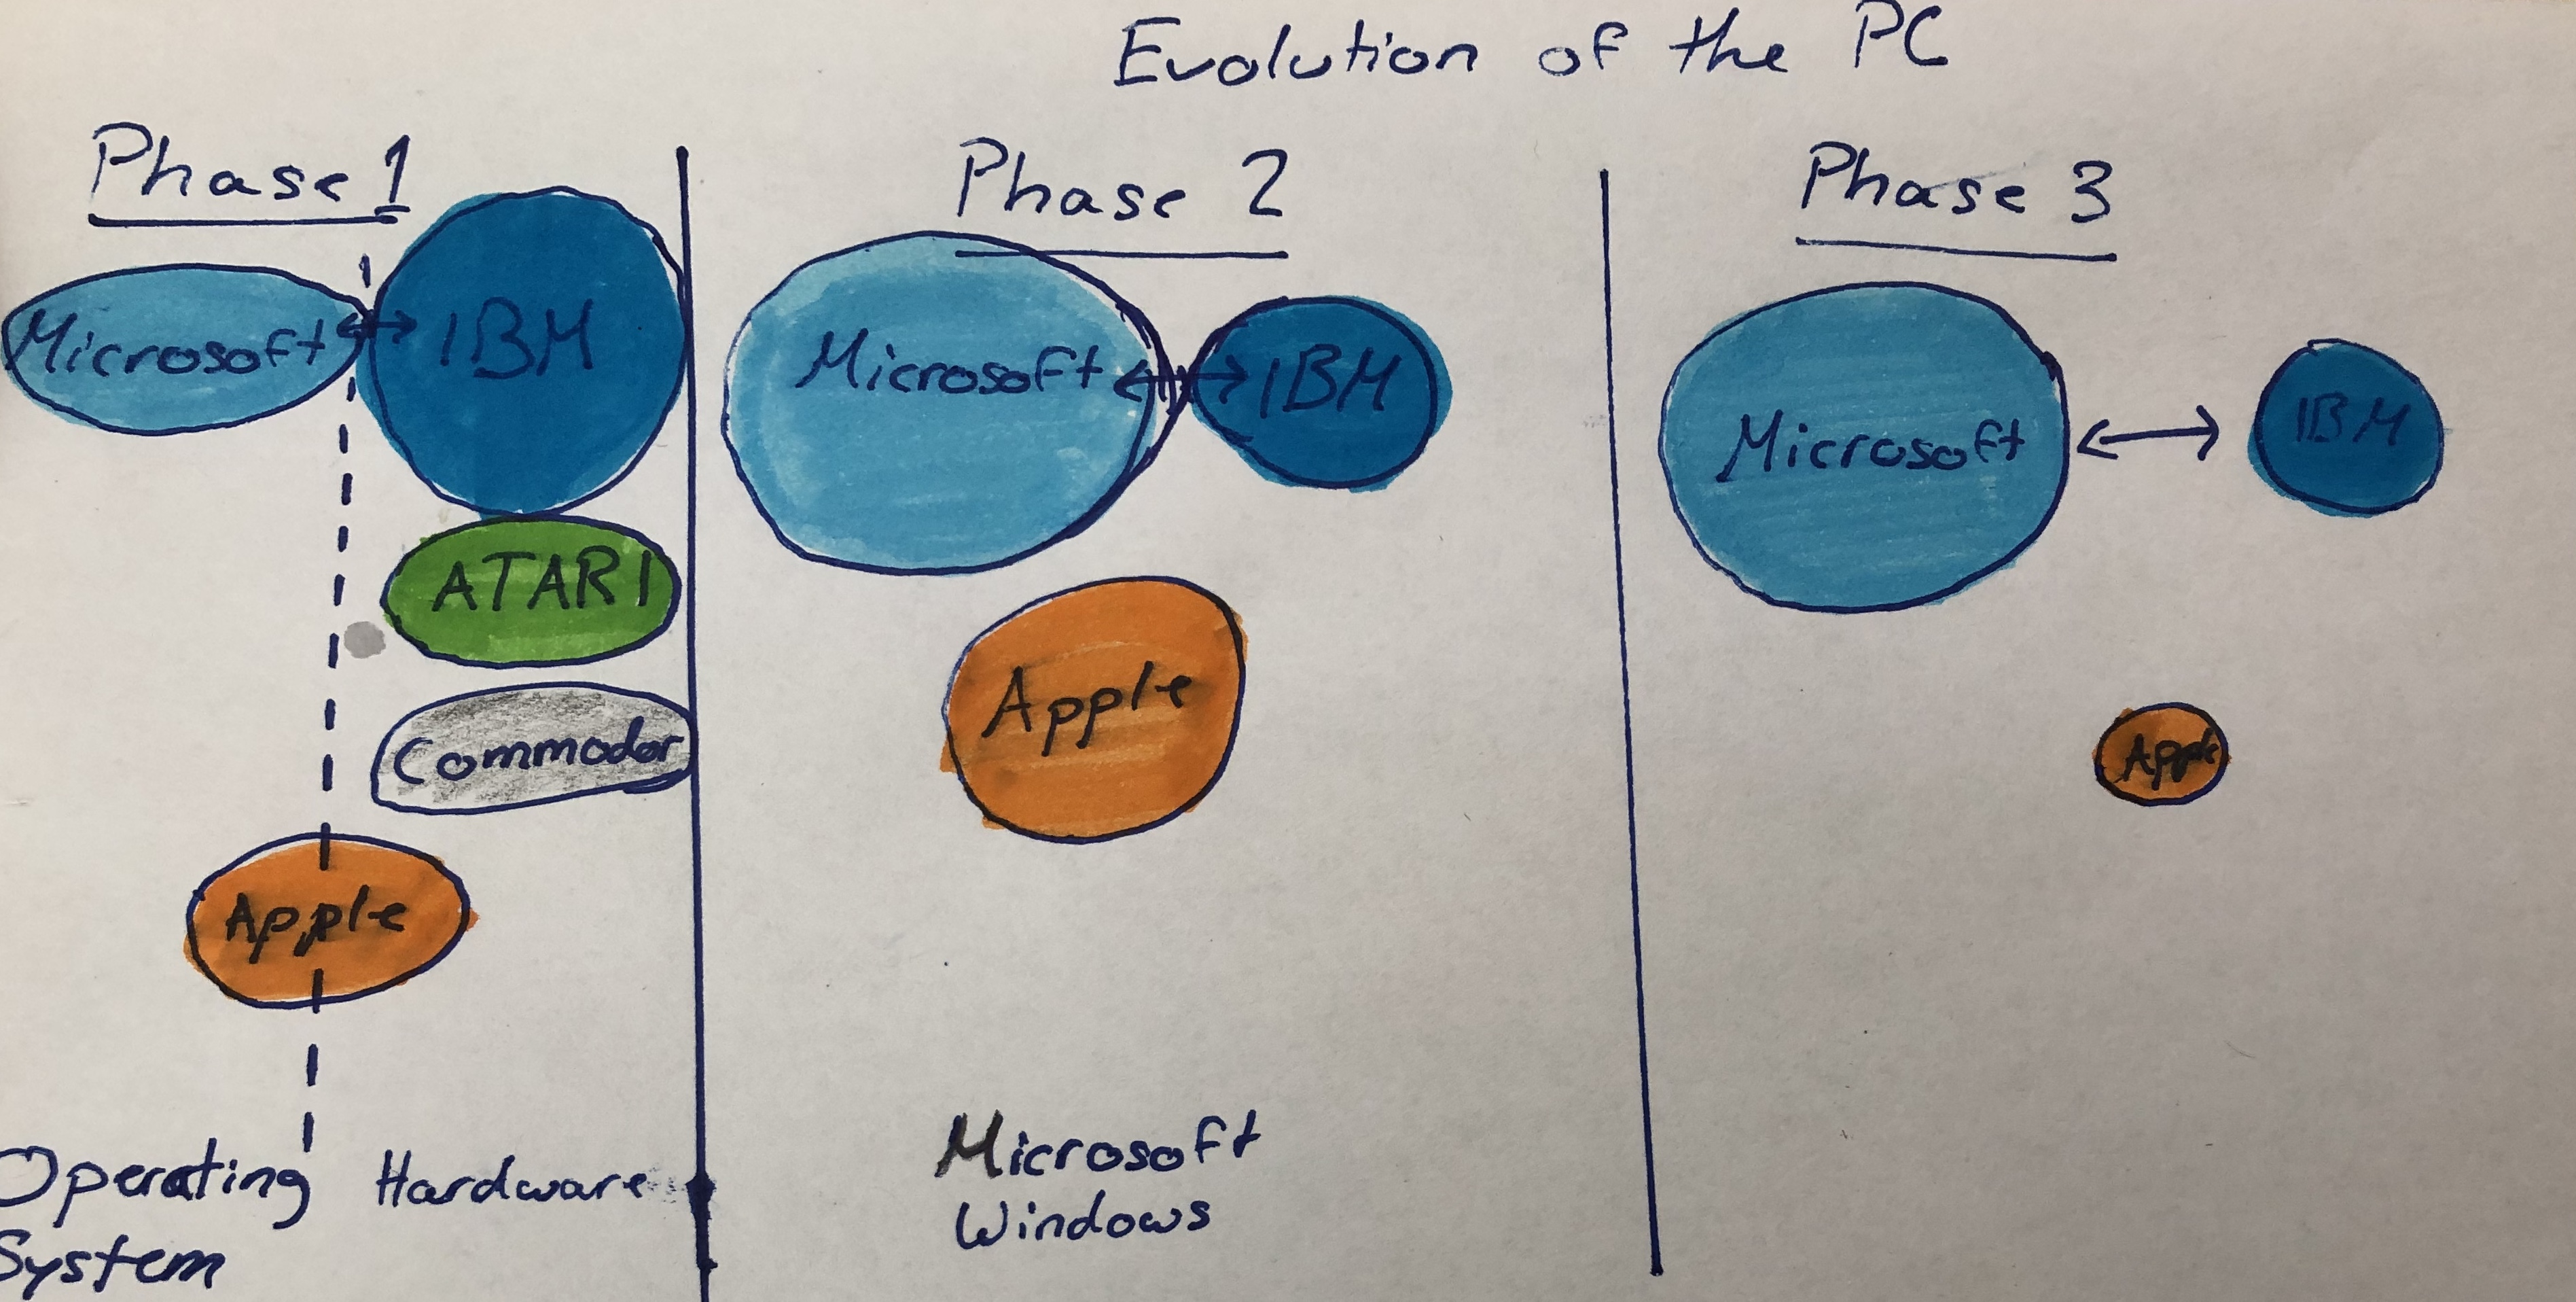 Evolution of the PC
Phase 1
Microsoft
IBM
ATARI
Commodor
Apple
Operating
System
Hardware
Phase 2
Microsoft
IBM
Apple
Microsoft
Windows
Phase 3
Microsoft
IBM
Apple